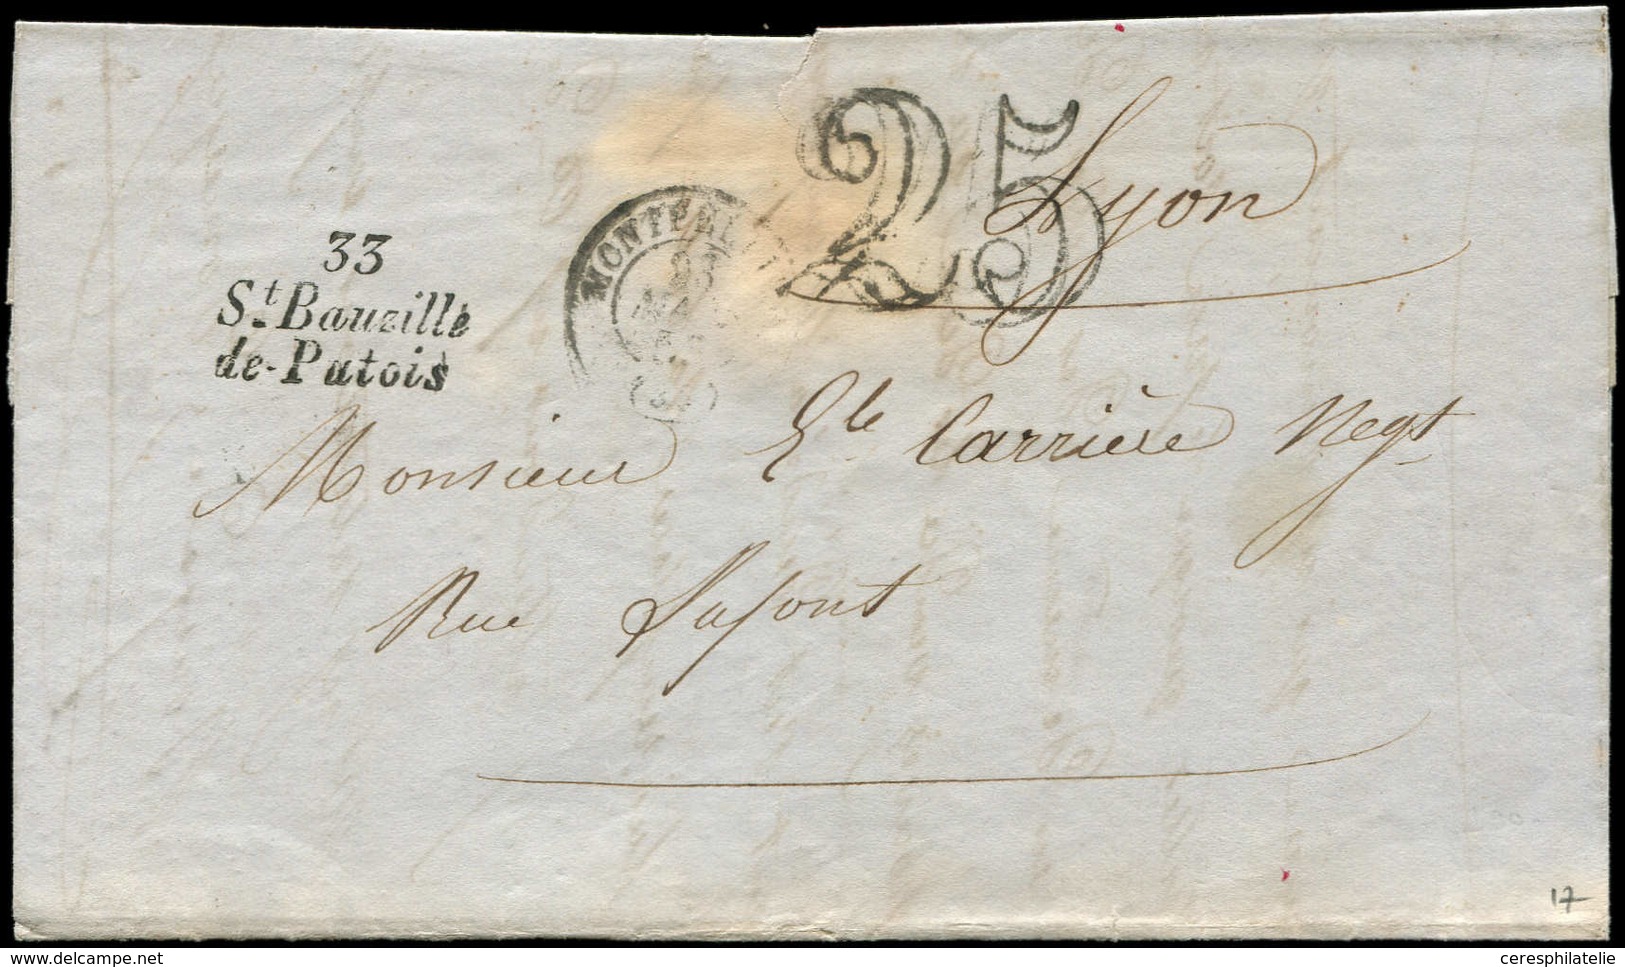 33
St Bauzille
de-Putois
MONTPEL
25
Lyon
Monsieur Carrière Negt
Rue Lafont
17
www.delcampe.net
ceresphilatelie